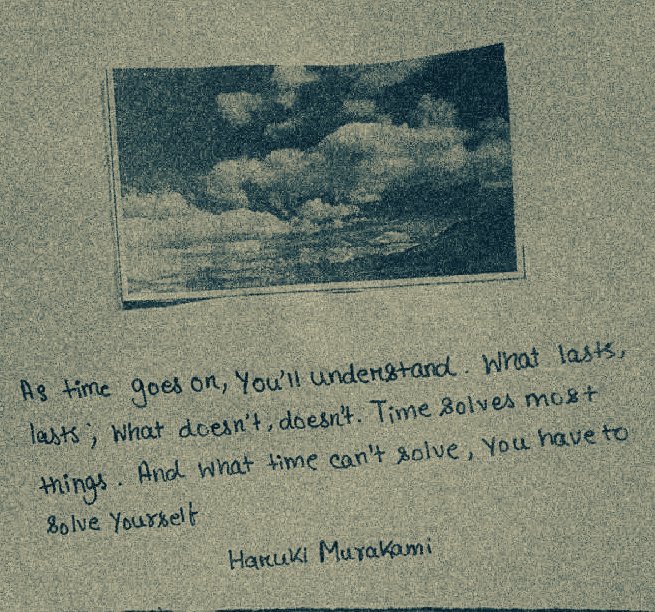 As time goes on, You'll understand. What lasts,
lasts; What doesn't, doesn't. Time solves most
things. And What time can't solve, You have to
Solve Yourself
Haruki Murakami